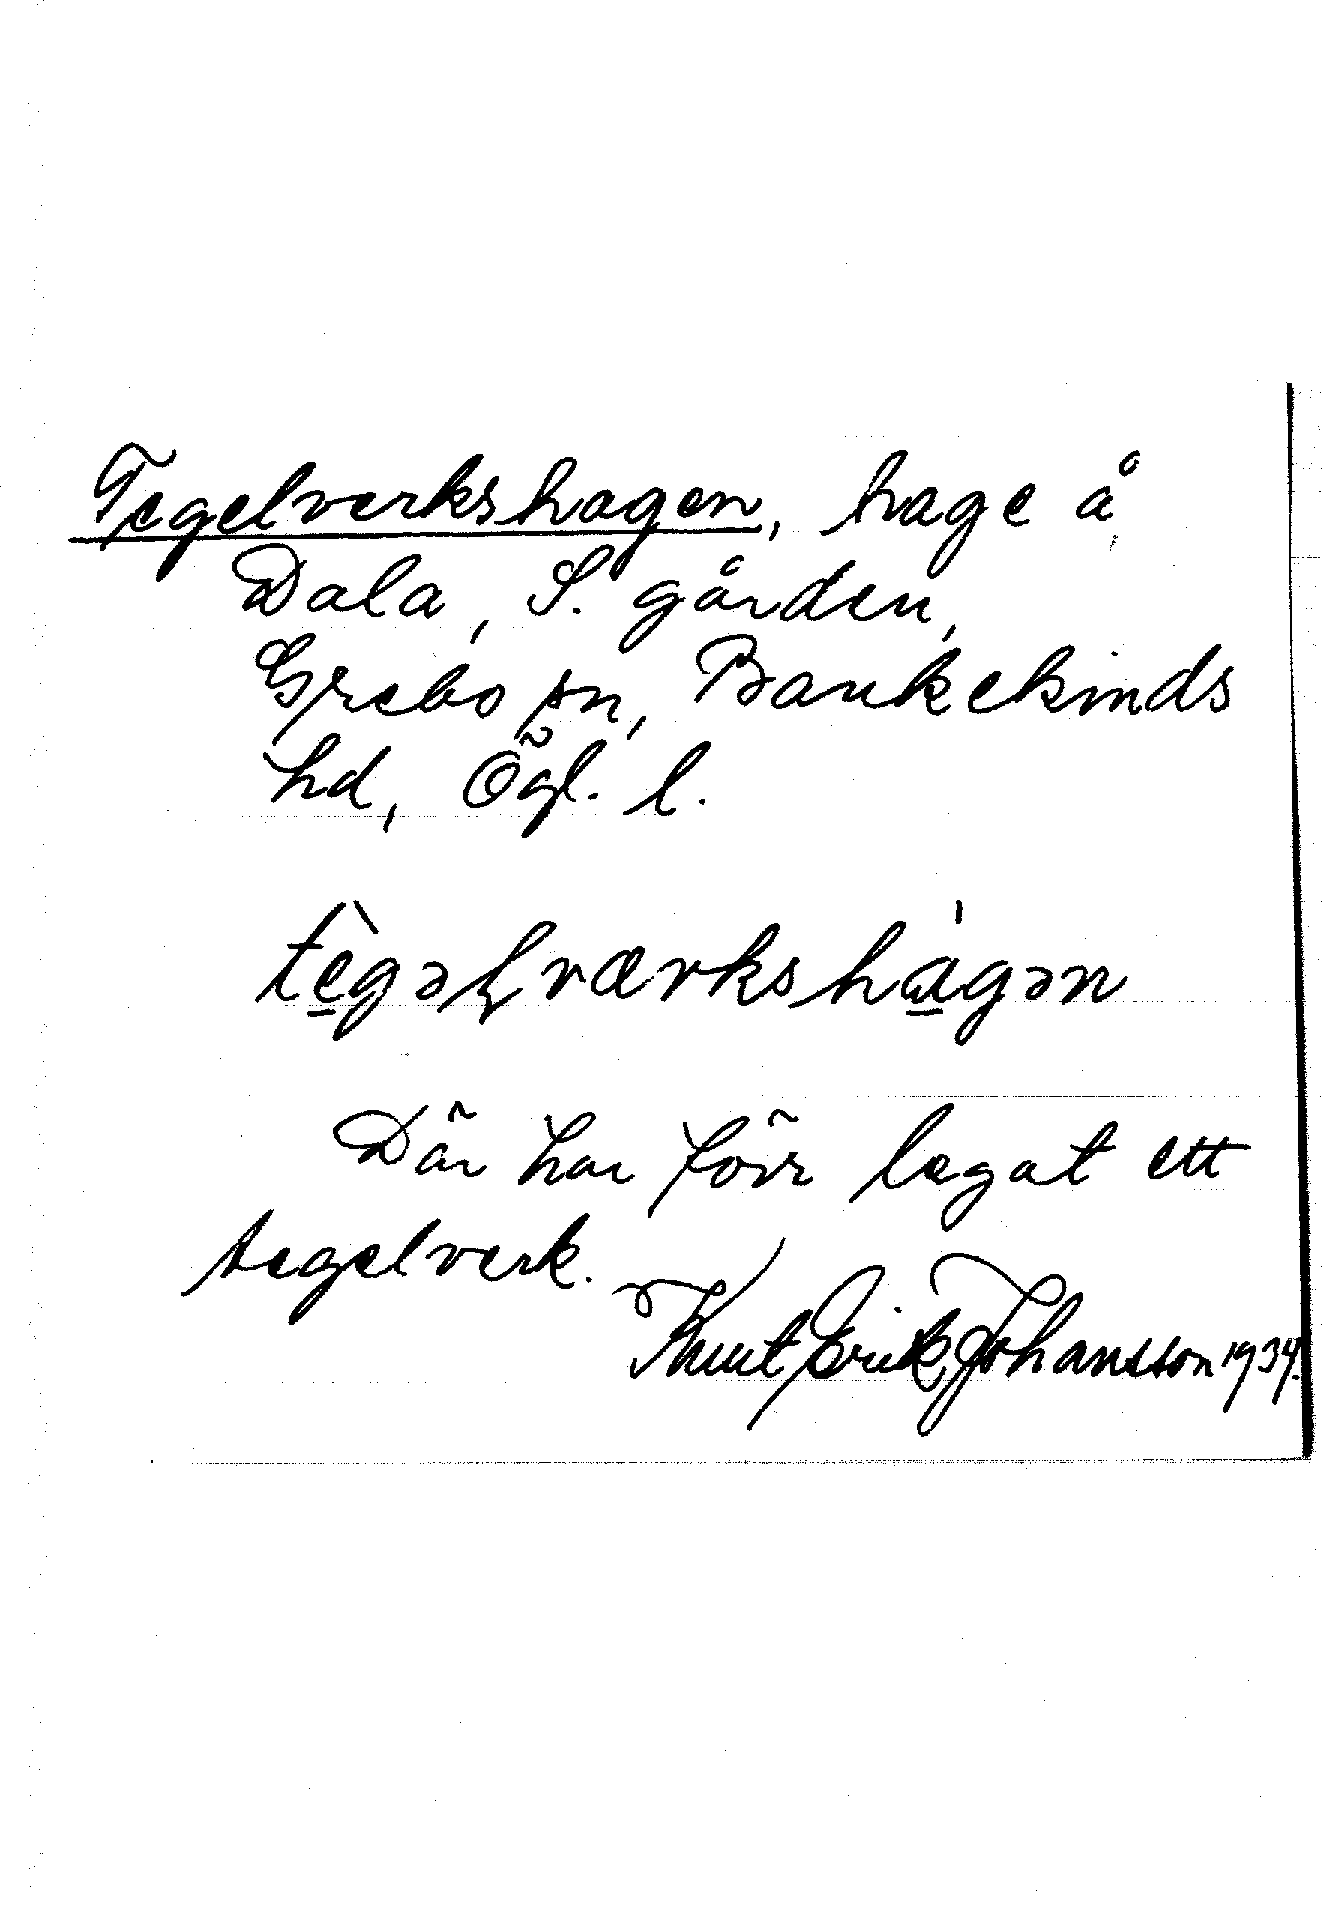 Tegelverkshagen, hage å
Dala, S. gården,
Grebo sn, Bankekinds
hd, Ögl. l.
tè̱gəɽværkshá̱gən
Där har förr legat ett
tegelverk.
Knut Erik Johansson 1934.